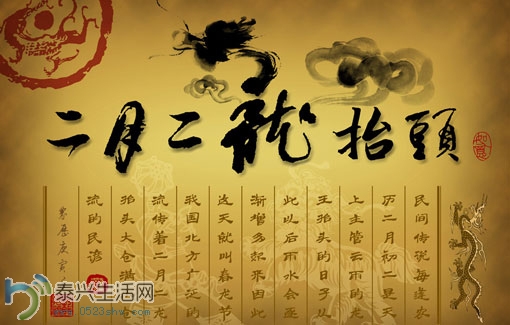 二月二龍抬頭
民间传说每逢农
历二月初二是天
上主管云雨的龙
王抬头的日子从
此以后雨水会逐
渐增多起来因此
这天就叫春龙节
我国北方广泛的
流传着二月二龙
抬头大仓满
流的民谚
泰兴生活网